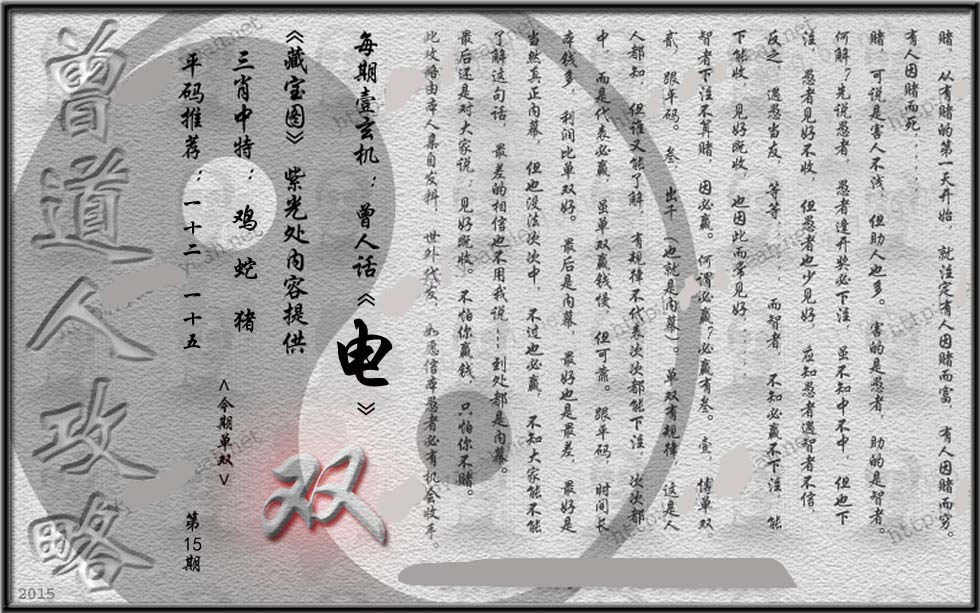 赌，从有赌的第一天开始，就注定有人因赌而富，有人因赌而穷。
有人因赌而死．．．．．
赌，可说是害人不浅，但助人也多。害的是愚者，助的是智者。
何解？先说愚者，愚者逢开奖必下注，虽不知中不中，但也下
注，愚者见好不收，但愚者也少见好，应知愚者遇智者不信，
反之，遇愚当友，等等．．．．．而智者，不知必赢不下注，能
下能收，见好既收，也因此而常见好．．．．．
智者下注不算赌，因必赢。何谓必赢？必赢有叁。壹，博单双，
贰，跟平码。叁，出千（也就是内幕）。单双有规律，这是人
人都知，但谁又能了解，有规律不代表次次都能下注，次次都
中，而是代表必赢，虽单双赢钱慢，但可靠。跟平码，时间长，
本钱多，利润比单双好。最后是内幕，最好也是最差，最好是
当然真正内幕，但也没法次次中，不过也必赢，不知大家能不能
了解这句话，最差的相信也不用我说…到处都是内幕。
最后还是对大家说：见好既收。不怕你赢钱，只怕你不赌。
此攻略由本人集自发料，世外代友，如愿信本愚者必有机会收手。
每期壹玄机：曾人话《电》
《藏宝图》紫光处内容提供
三肖中特：鸡 蛇 猪
平码推荐：一十二 一十五
<今期单双>
双
第15期
曾道人攻略
2015